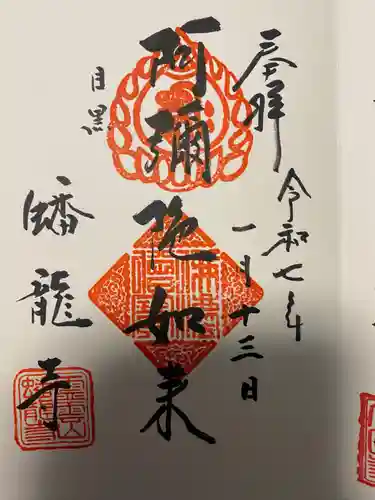 奉拝
令和七年
一月十三日
阿彌陀如来
目黒
蟠龍寺